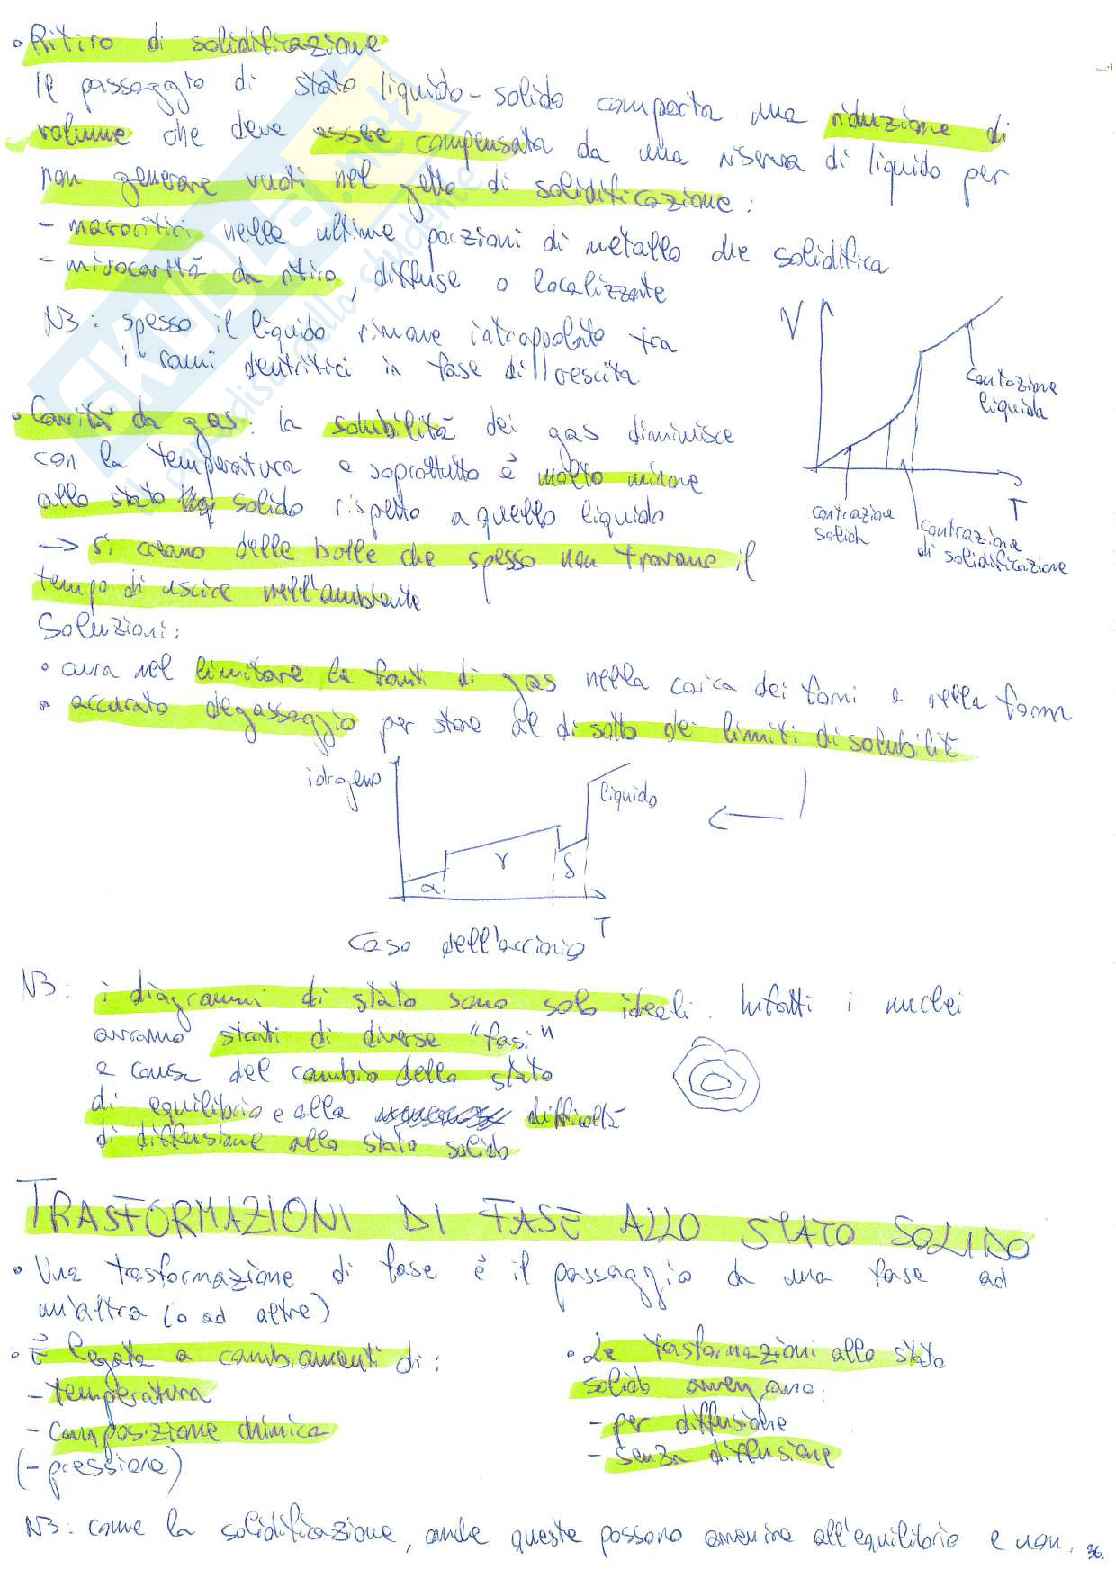 • Ritiro di solidificazione
Il passaggio di stato liquido-solido comporta una riduzione di
volume che deve essere compensata da una riserva di liquido per
non generare vuoti nel getto di solidificazione:
- macroritiri nelle ultime porzioni di metallo che solidifica
- microcavità da ritiro, diffuse o localizzate
NB: spesso il liquido rimane intrappolato tra
i rami dentritici in fase di crescita
V
contrazione
liquida
T
contrazione
solida
contrazione
di solidificazione
• Cavità da gas: la solubilità dei gas diminuisce
con la temperatura e soprattutto è molto minore
allo stato solido rispetto a quello liquido
→ si creano delle bolle che spesso non trovano il
tempo di uscire nell'ambiente
Soluzioni:
• cura nel limitare le fonti di gas nella carica dei forni e nella forma
• accurato degassaggio per stare al di sotto dei limiti di solubilità
idrogeno
liquido
α
γ
δ
T
Caso dell'acciaio
NB: i diagrammi di stato sono solo ideali. Infatti i nuclei
avranno strati di diverse "fasi"
a causa del cambio dello stato
di equilibrio e alla difficoltà
di diffusione allo stato solido
TRASFORMAZIONI DI FASE ALLO STATO SOLIDO
• Una trasformazione di fase è il passaggio da una fase ad
un'altra (o ad altre)
• È legata a cambiamenti di:
- temperatura
- composizione chimica
(- pressione)
• Le trasformazioni allo stato
solido avvengono:
- per diffusione
- senza diffusione
NB: come la solidificazione, anche queste possono avvenire all'equilibrio e non.
36.